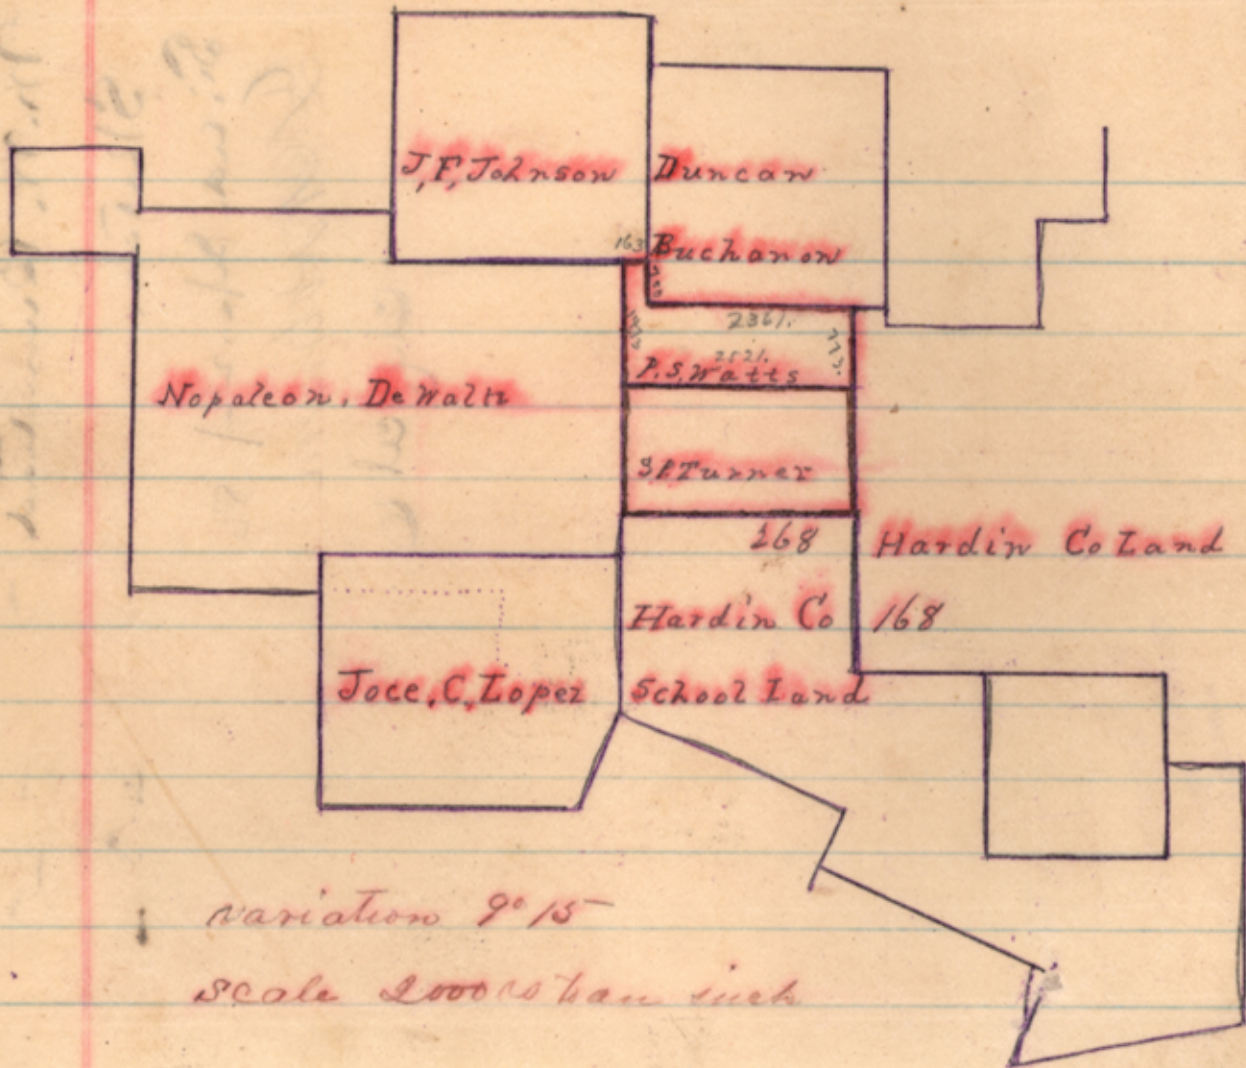 J,F,Johnson
Duncan
Buchanon
163
2361.
2521.
P.S.Watts
Nopaleon. De Waltz
S.P.Turner
268
Hardin Co Land
168
Hardin Co
School Land
Joce.C.Lopez
variation 9° 15
scale 2000 vs to an inch